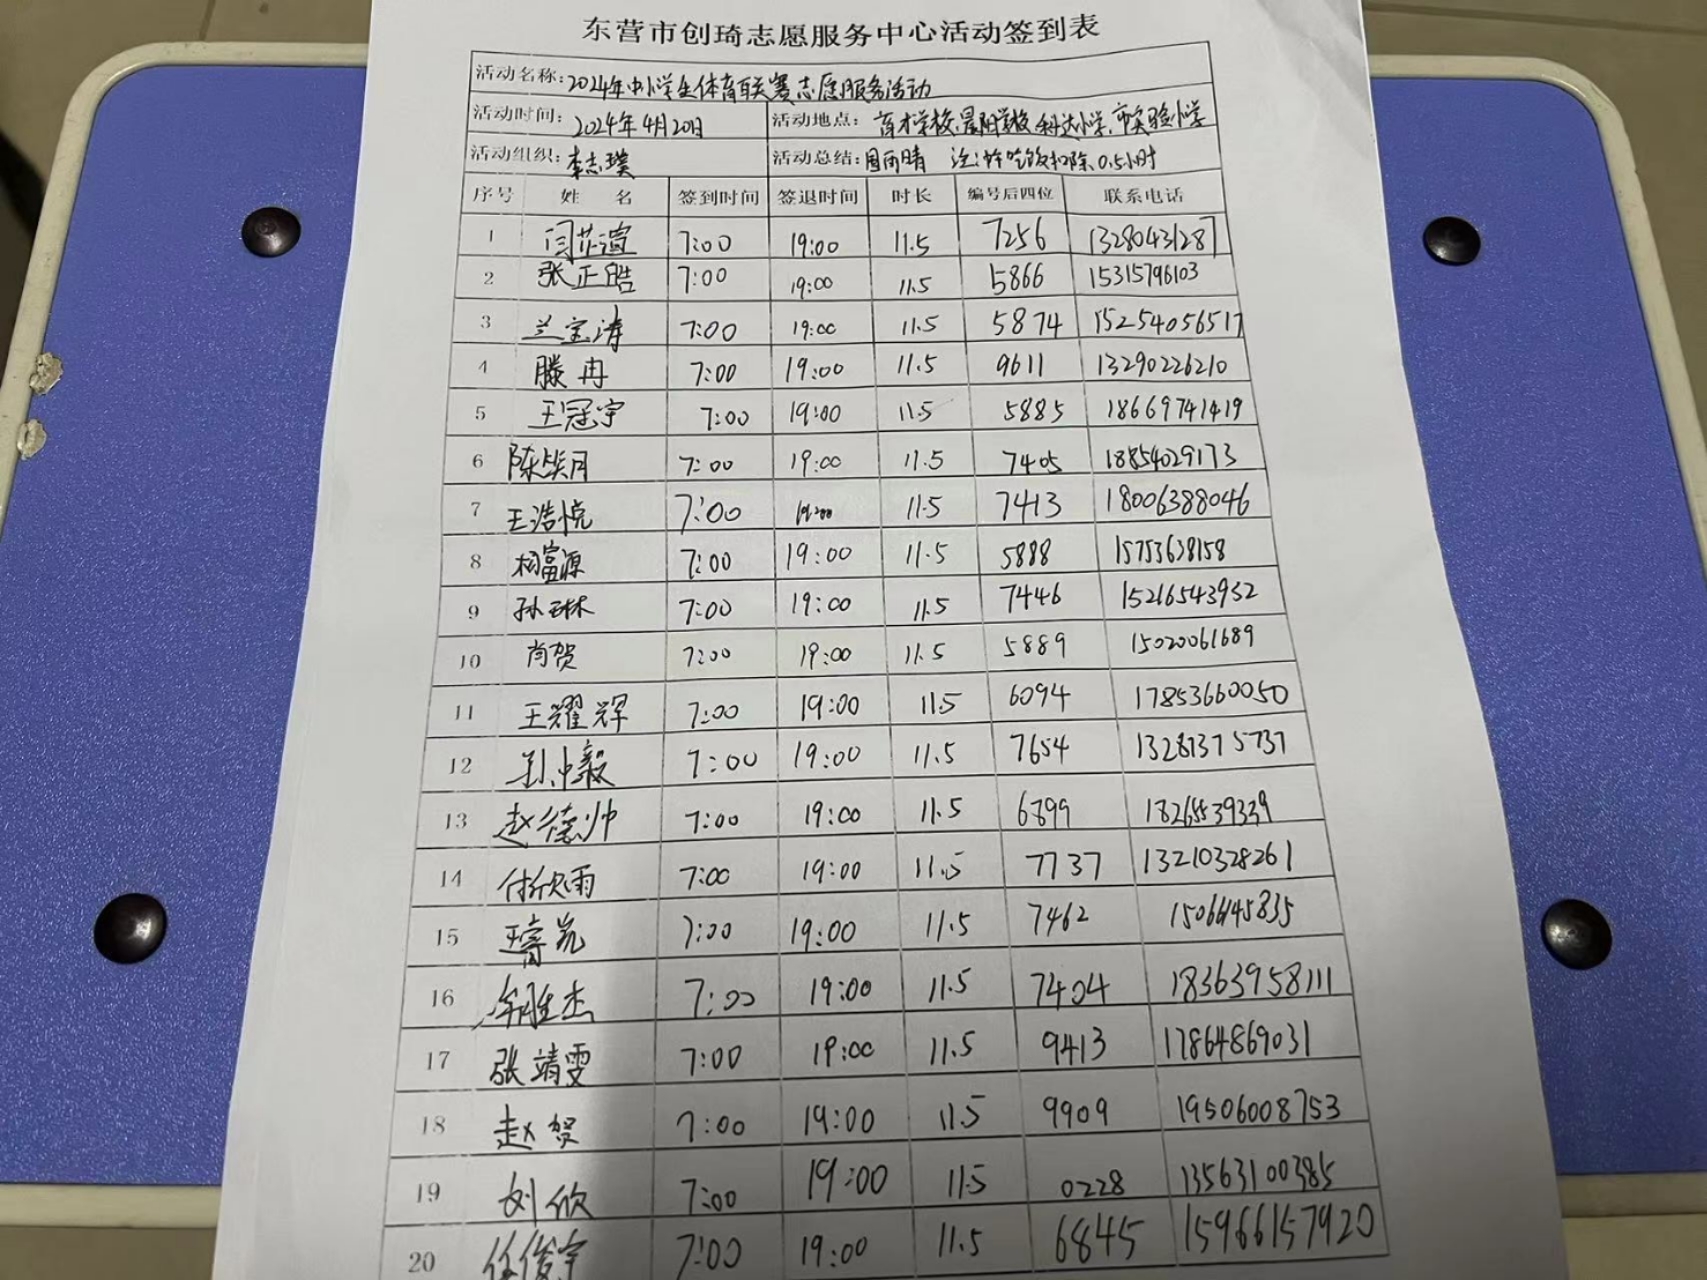 东营市创琦志愿服务中心活动签到表
活动名称: 2024年中小学生体育联赛志愿服务活动
活动时间: 2024年4月20日 活动地点: 育才学校、晨阳学校、科达小学、市实验小学
活动组织: 李志璞 活动总结: 周雨晴 注:午吃饭扣除0.5小时
序号 姓 名 签到时间 签退时间 时长 编号后四位 联系电话
1 闫芷萱 7:00 19:00 11.5 7256 13280431287
2 张正皓 7:00 19:00 11.5 5866 15315796103
3 兰宝涛 7:00 19:00 11.5 5874 15254056517
4 滕冉 7:00 19:00 11.5 9611 13290226210
5 王冠宇 7:00 19:00 11.5 5885 18669741419
6 7:00 19:00 11.5 7405 18854029173
7 王浩悦 7:00 19:00 11.5 7413 18006388046
8 柯富源 7:00 19:00 11.5 5888 15753638158
9 孙琳 7:00 19:00 11.5 7446 15216543932
10 肖贺 7:00 19:00 11.5 5889 15020061689
11 王耀辉 7:00 19:00 11.5 6094 17853660050
12 7:00 19:00 11.5 7654 13281375737
13 赵德帅 7:00 19:00 11.5 6899 18265539339
14 付欣雨 7:00 19:00 11.5 7737 13210328261
15 王睿凯 7:00 19:00 11.5 7462 15066145835
16 7:00 19:00 11.5 7404 18363958111
17 张靖雯 7:00 19:00 11.5 9413 17864869031
18 赵贺 7:00 19:00 11.5 9909 19506008753
19 刘欣 7:00 19:00 11.5 0228 13563100385
20 任俊宇 7:00 19:00 11.5 6845 15966157920